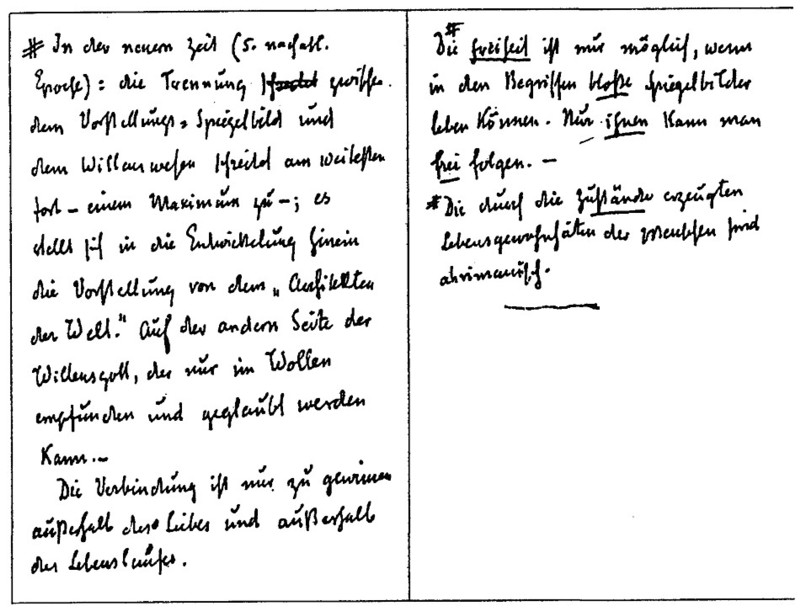 # In der neuern Zeit (5. nachatl.
Epoche) = die Trennung schreitet zwischen
dem Vorstellungs = Spiegelbild und
dem Willenswesen schreitet am weitesten
fort – einem Maximum zu –; es
stellt sich in die Entwickelung hinein
die Vorstellung von dem „Architekten
der Welt." Auf der andern Seite der
Willensgott, der nur im Wollen
empfunden und geglaubt werden
kann. –
Die Verbindung ist nur zu gewinnen
außerhalb des Leibes und außerhalb
des Lebenslaufes.
# Die Freiheit ist nur möglich, wenn
in den Begriffen bloße Spiegelbilder
leben können. Nur ihnen kann man
frei folgen. –
# Die durch die Zustände erzeugten
Lebensgewohnheiten der Menschen sind
ahrimanisch.